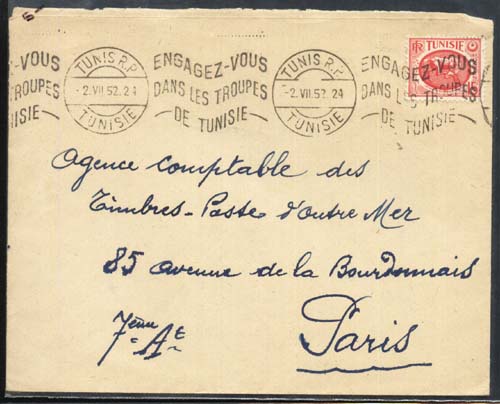 -VOUS
TROUPES
ISIE
TUNIS R.P.
-2.VII.52.24
TUNISIE
ENGAGEZ-VOUS
DANS LES TROUPES
DE TUNISIE
TUNIS R.P.
-2.VII.52.24
TUNISIE
ENGAGEZ-VOUS
DANS LES TROUPES
DE TUNISIE
RF TUNISIE
Agence comptable des
Timbres-Poste d'outre Mer
85 avenue de la Bourdonnais
7ème At
Paris